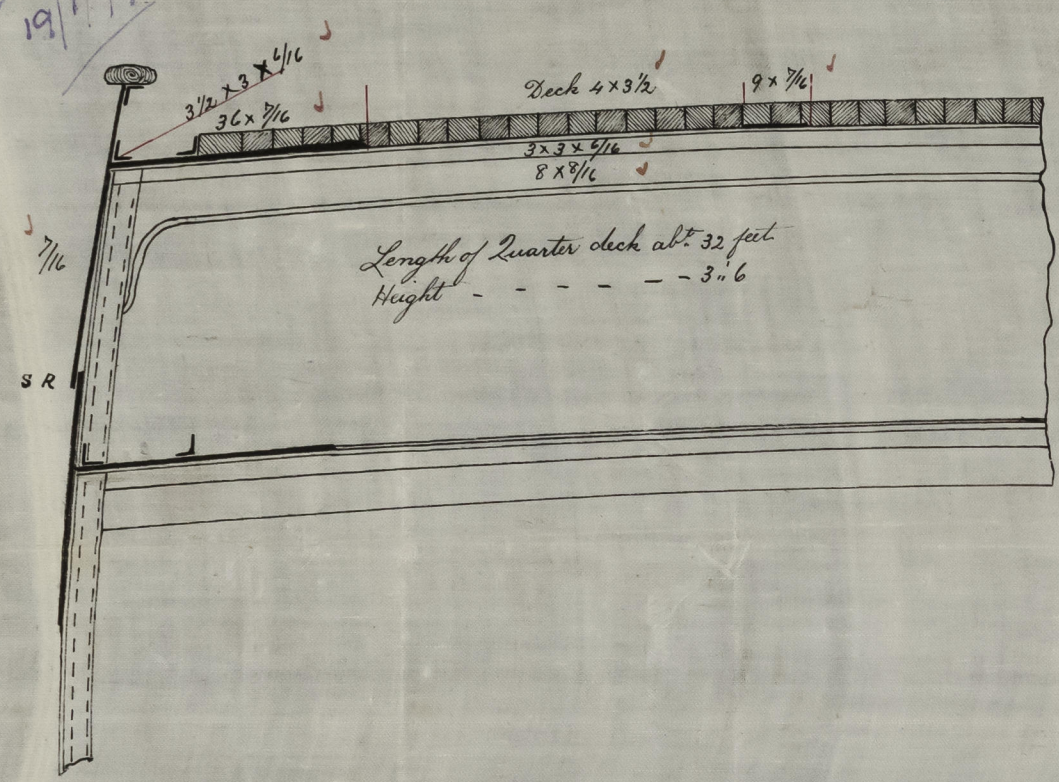 3½ × 3 × 6/16
36 × 7/16
Deck 4 × 3½
9 × 7/16
3 × 3 × 6/16
8 × 8/16
7/16
Length of Quarter deck abt. 32 feet
Height - - - - - - 3"6
S R